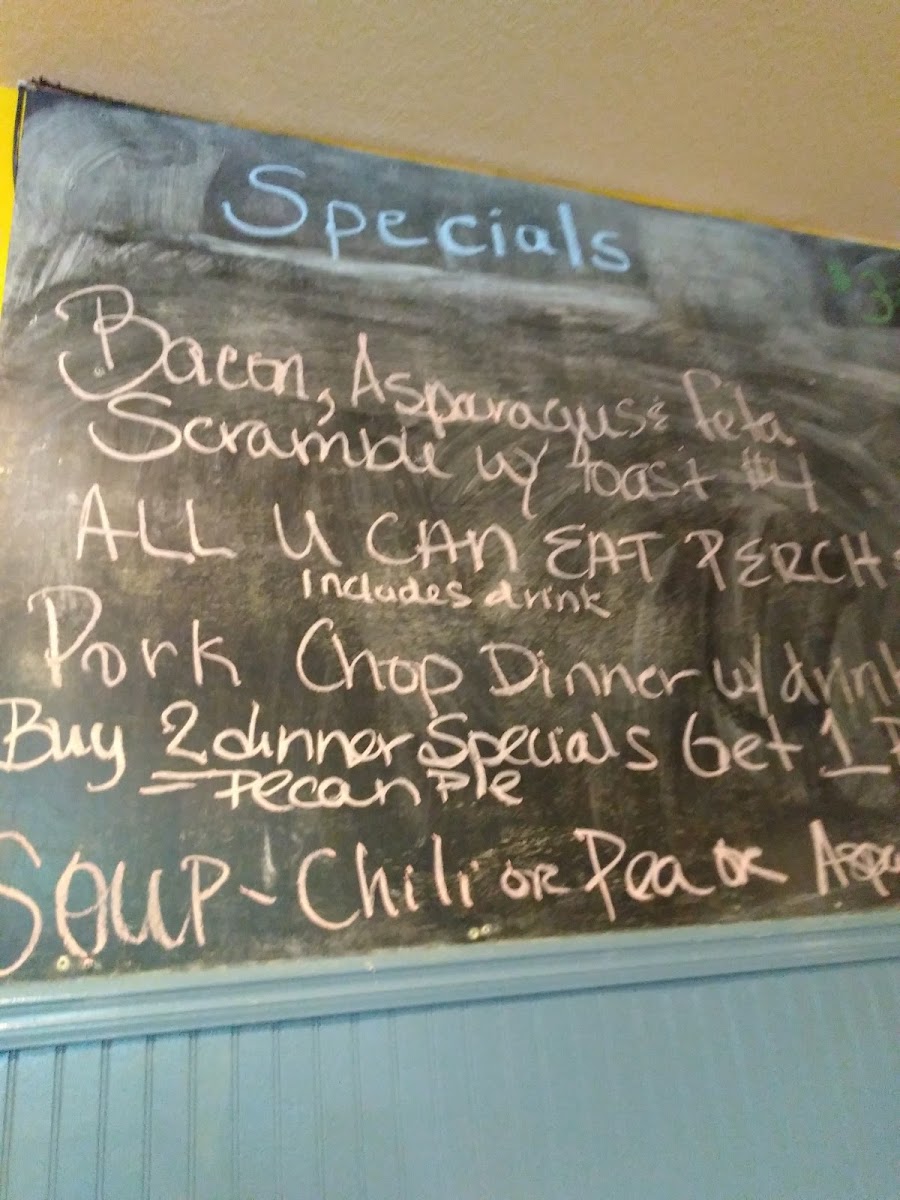 Specials
Bacon, Asparagus & Feta
Scramble w/ Toast $4
ALL U CAN EAT PERCH
Includes drink
Pork Chop Dinner w/ drink
Buy 2 dinner Specials Get 1
Pecan Pie
SOUP - Chili OR Pea OR